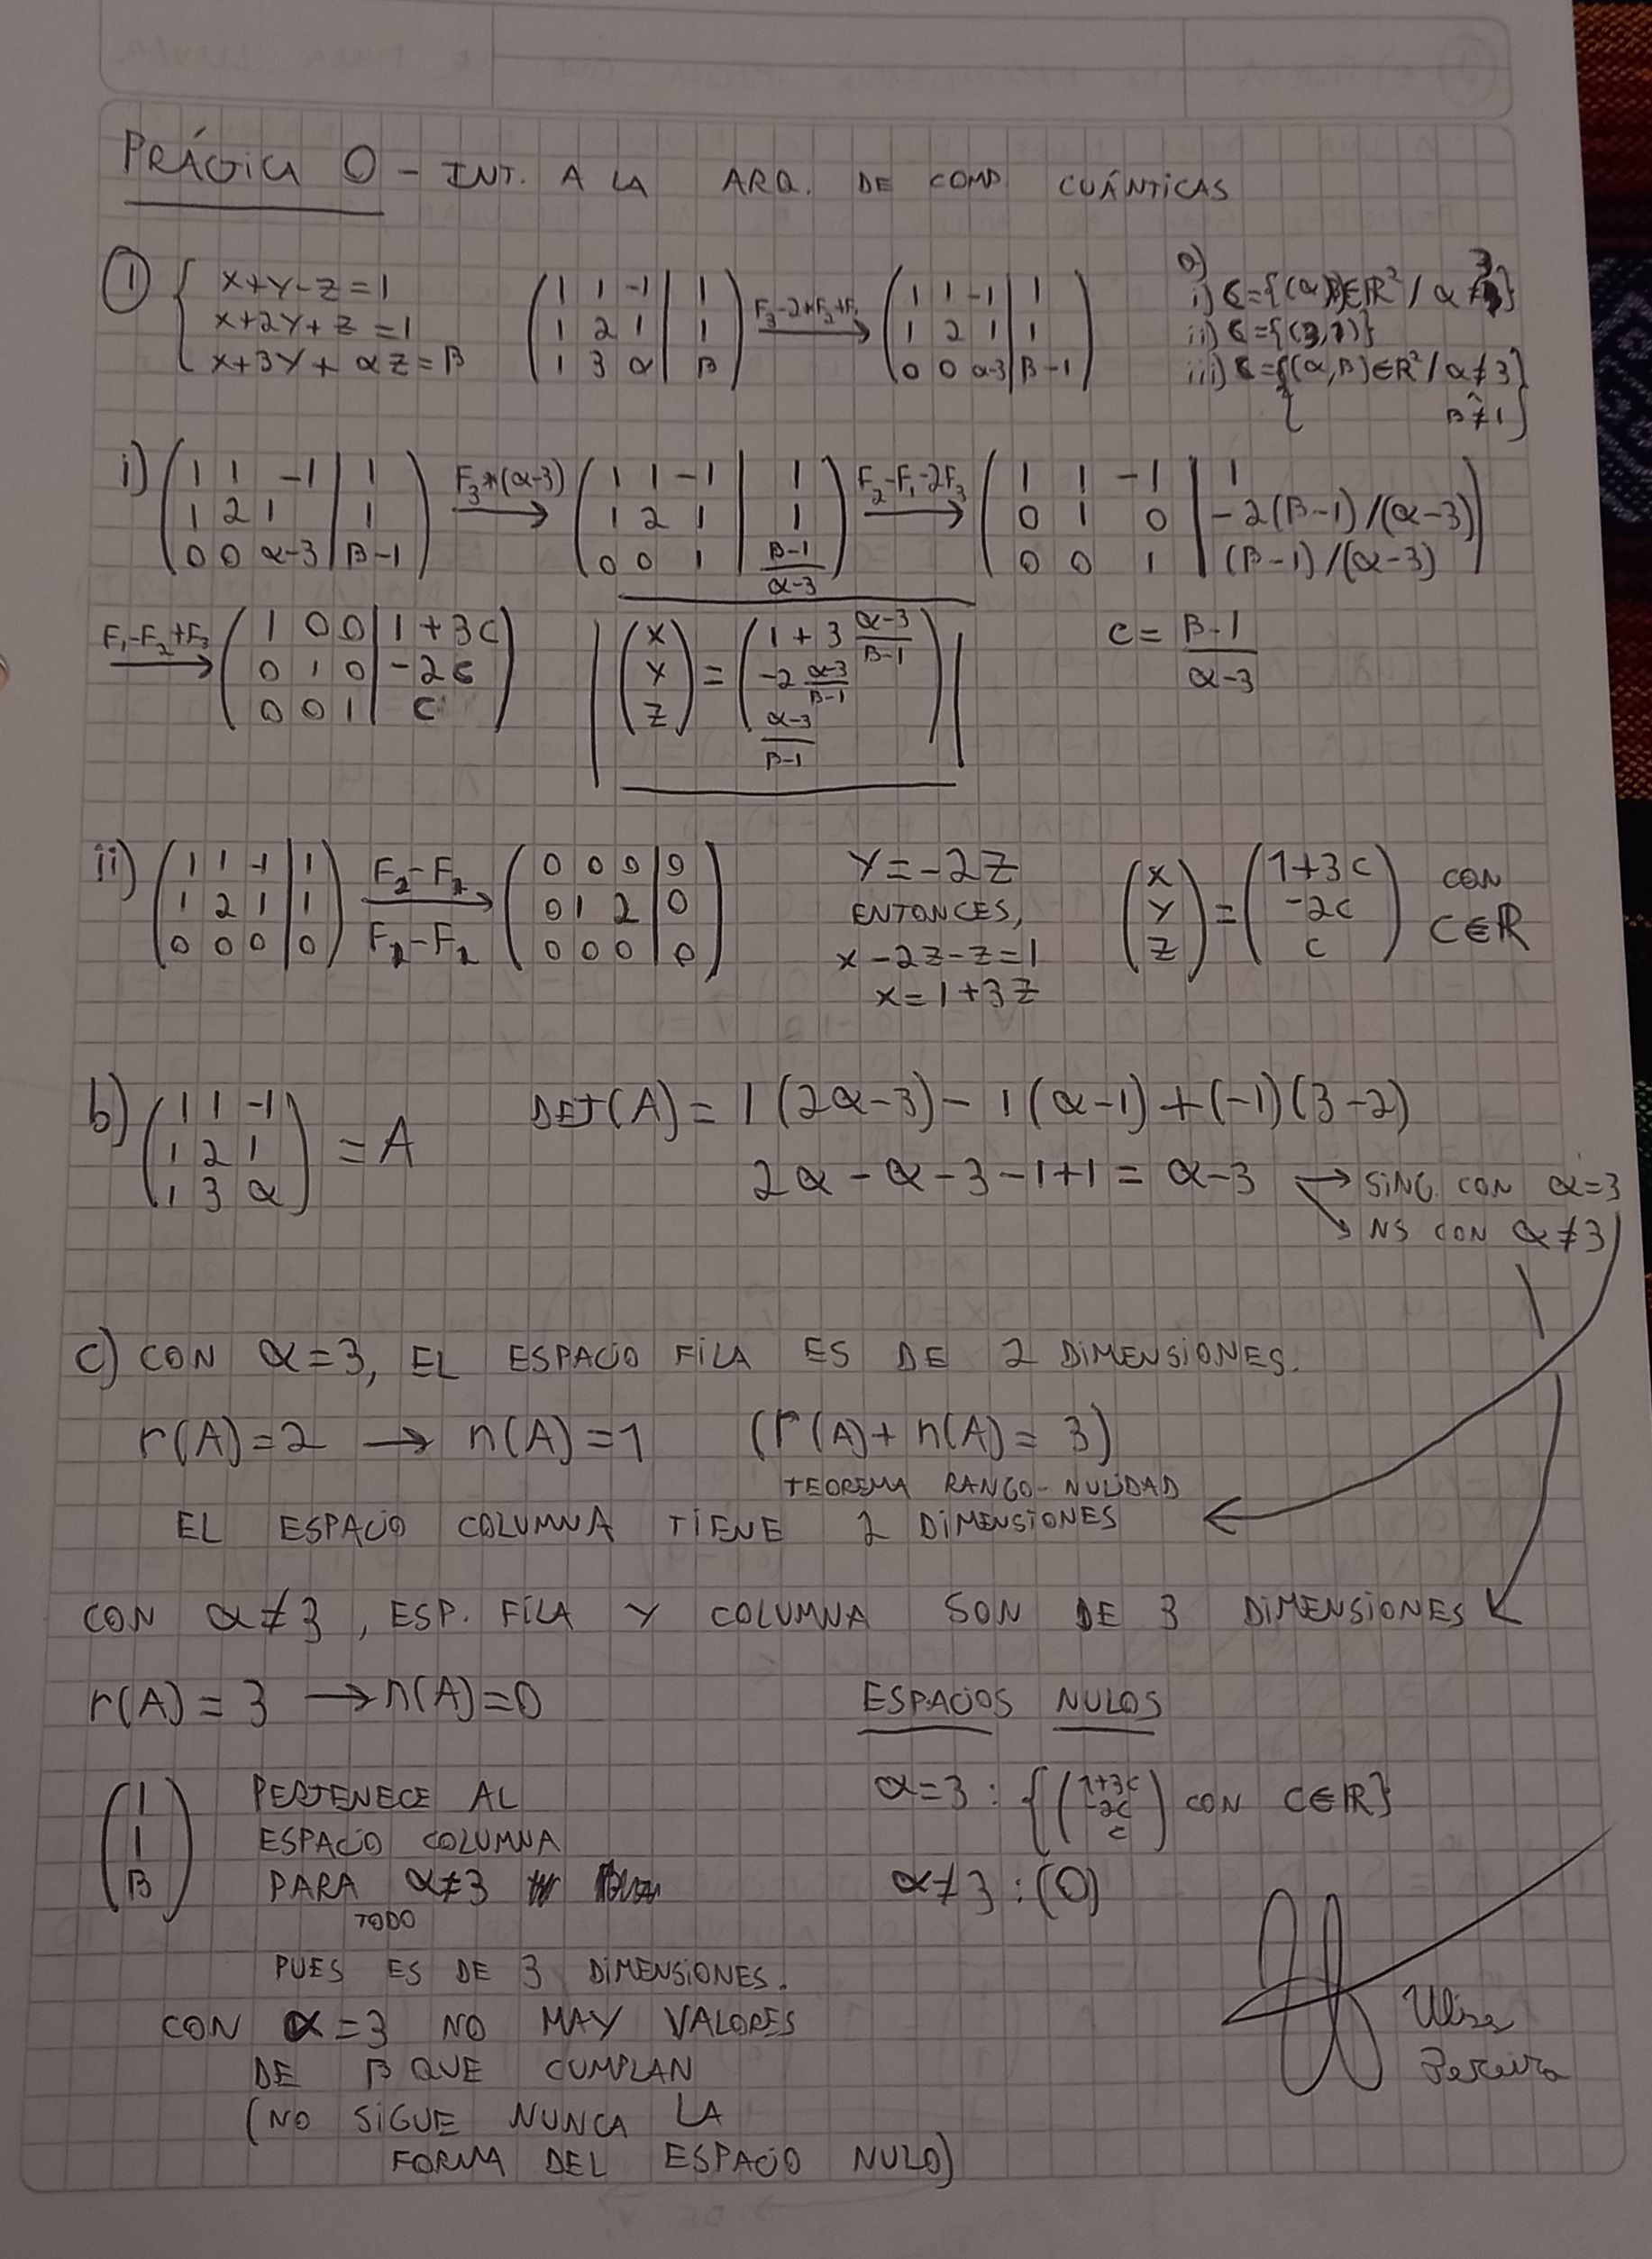 PRÁCTICA 0 - INT. A LA ARQ. DE COMP CUÁNTICAS
① { x+y-z=1
x+2y+z=1
x+3y+αz=β
(1 1 -1 | 1
1 2 1 | 1
1 3 α | β)
F₃-2*F₂+F₁ →
(1 1 -1 | 1
1 2 1 | 1
0 0 α-3 | β-1)
a)
i) C={(α,β)∈ℝ²/ α≠3}
ii) C={(3,1)}
iii) C={(α,β)∈ℝ²/α≠3
^
β≠1}
i) (1 1 -1 | 1
1 2 1 | 1
0 0 α-3 | β-1)
F₃*(α-3) →
(1 1 -1 | 1
1 2 1 | 1
0 0 1 | (β-1)/(α-3))
F₂-F₁-2F₃ →
(1 1 -1 | 1
0 1 0 | -2(β-1)/(α-3)
0 0 1 | (β-1)/(α-3))
F₁-F₂+F₃ →
(1 0 0 | 1+3c
0 1 0 | -2c
0 0 1 | c)
(x
y
z) = (1+3 (α-3)/(β-1)
-2 (α-3)/(β-1)
(α-3)/(β-1))
c = (β-1)/(α-3)
ii) (1 1 -1 | 1
1 2 1 | 1
0 0 0 | 0)
F₂-F₁ →
F₁-F₂
(0 0 0 | 0
0 1 2 | 0
0 0 0 | 0)
y=-2z
ENTONCES,
x-2z-z=1
x=1+3z
(x
y
z) = (1+3c
-2c
c)
CON
C∈ℝ
b) (1 1 -1
1 2 1
1 3 α) = A
DET(A) = 1(2α-3) - 1(α-1) + (-1)(3-2)
2α-α-3-1+1 = α-3 → SING. CON α=3
↘ NS CON α≠3
c) CON α=3, EL ESPACIO FILA ES DE 2 DIMENSIONES.
r(A)=2 → n(A)=1 (r(A)+n(A)=3)
TEOREMA RANGO-NULIDAD
EL ESPACIO COLUMNA TIENE 2 DIMENSIONES ←
CON α≠3, ESP. FILA Y COLUMNA SON DE 3 DIMENSIONES
r(A)=3 → n(A)=0
(1
1
β)
PERTENECE AL
ESPACIO COLUMNA
PARA α≠3
TODO
PUES ES DE 3 DIMENSIONES.
CON α=3 NO HAY VALORES
DE β QUE CUMPLAN
(NO SIGUE NUNCA LA
FORMA DEL ESPACIO NULO)
ESPACIOS NULOS
α=3: {(1+3c
-2c
c) CON C∈ℝ}
α≠3: (0)
Ulises
Pereira